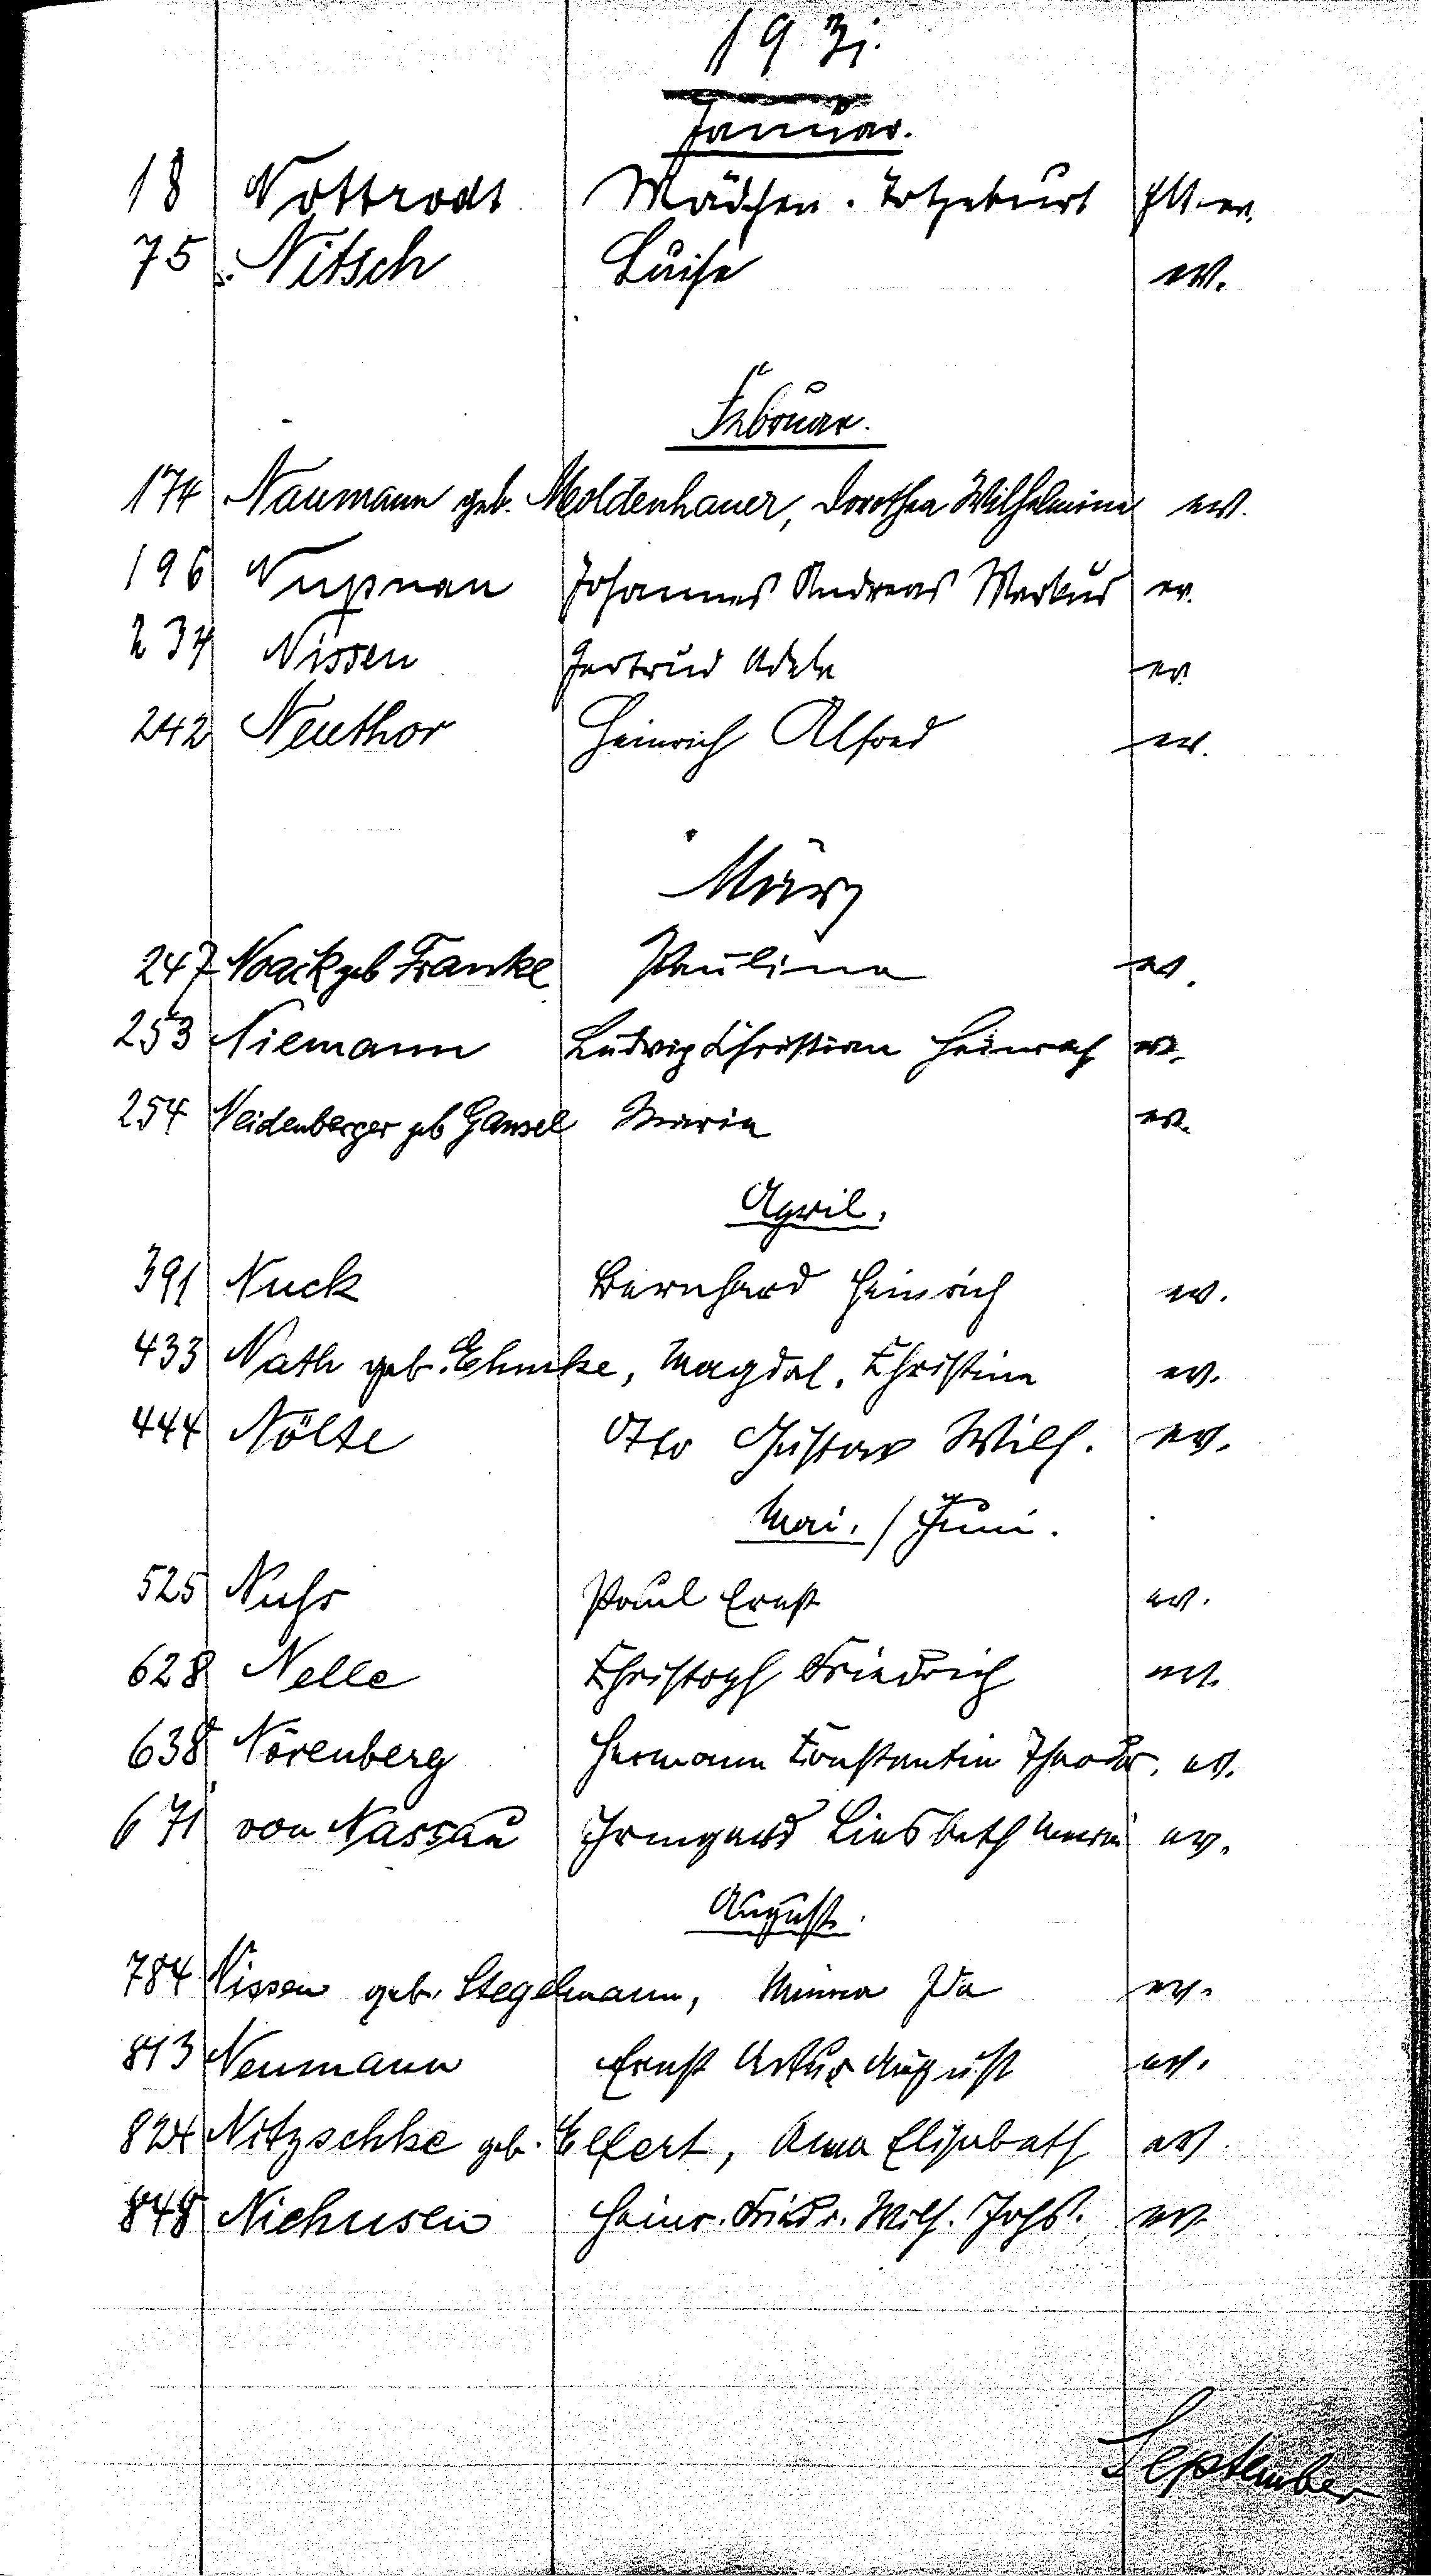 1931.
Januar.
18 Nottrodt Mädchen. Totgeburt Elt. ev.
75 Nitsch Luise ev.
Februar.
174 Naumann geb. Moldenhauer, Dorothea Wilhelmine ev.
196 Johannes Andreas Markus ev.
234 Nissen Gertrud Adele ev.
242 Neuthor Heinrich Alfred ev.
März
247 Noack geb Franke Pauline ev.
253 Niemann Ludwig Christian Heinrich ev.
254 Neidenberger geb Gansel Marie ev.
April.
391 Nuck Bernhard Heinrich ev.
433 Nath geb. Ehmke, Magdal. Christine ev.
444 Nölte Otto Gustav Wilh. ev.
Mai. / Juni.
525 Paul Ernst ev.
628 Nelle Christoph Friedrich ev.
638 Nörenberg Hermann Constantin Theodor. ev.
671 von Nassau Irmgard Liesbeth ev.
August.
784 Nissen geb. Stegelmann, Minna Ida ev.
813 Neumann Ernst Artur August ev.
824 Nitzschke geb. Elfert, Anna Elisabeth ev.
848 Niehusen Heinr. Friedr. Wilh. Johs. ev.
September